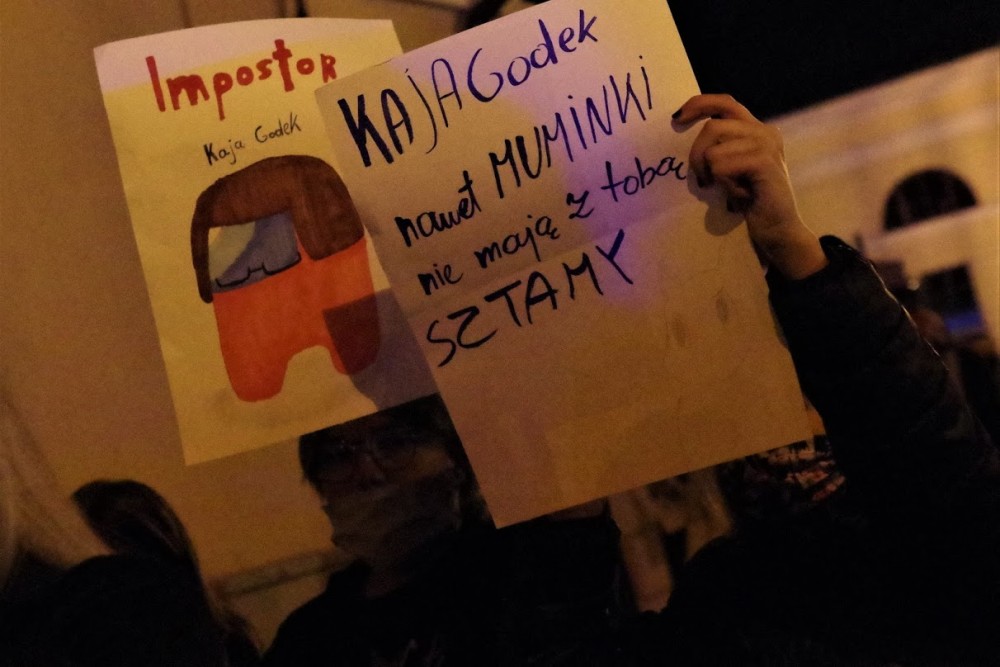 Impostor
Kaja Godek
KAJA Godek
nawet MUMINKI
nie mają z tobą
SZTAMY